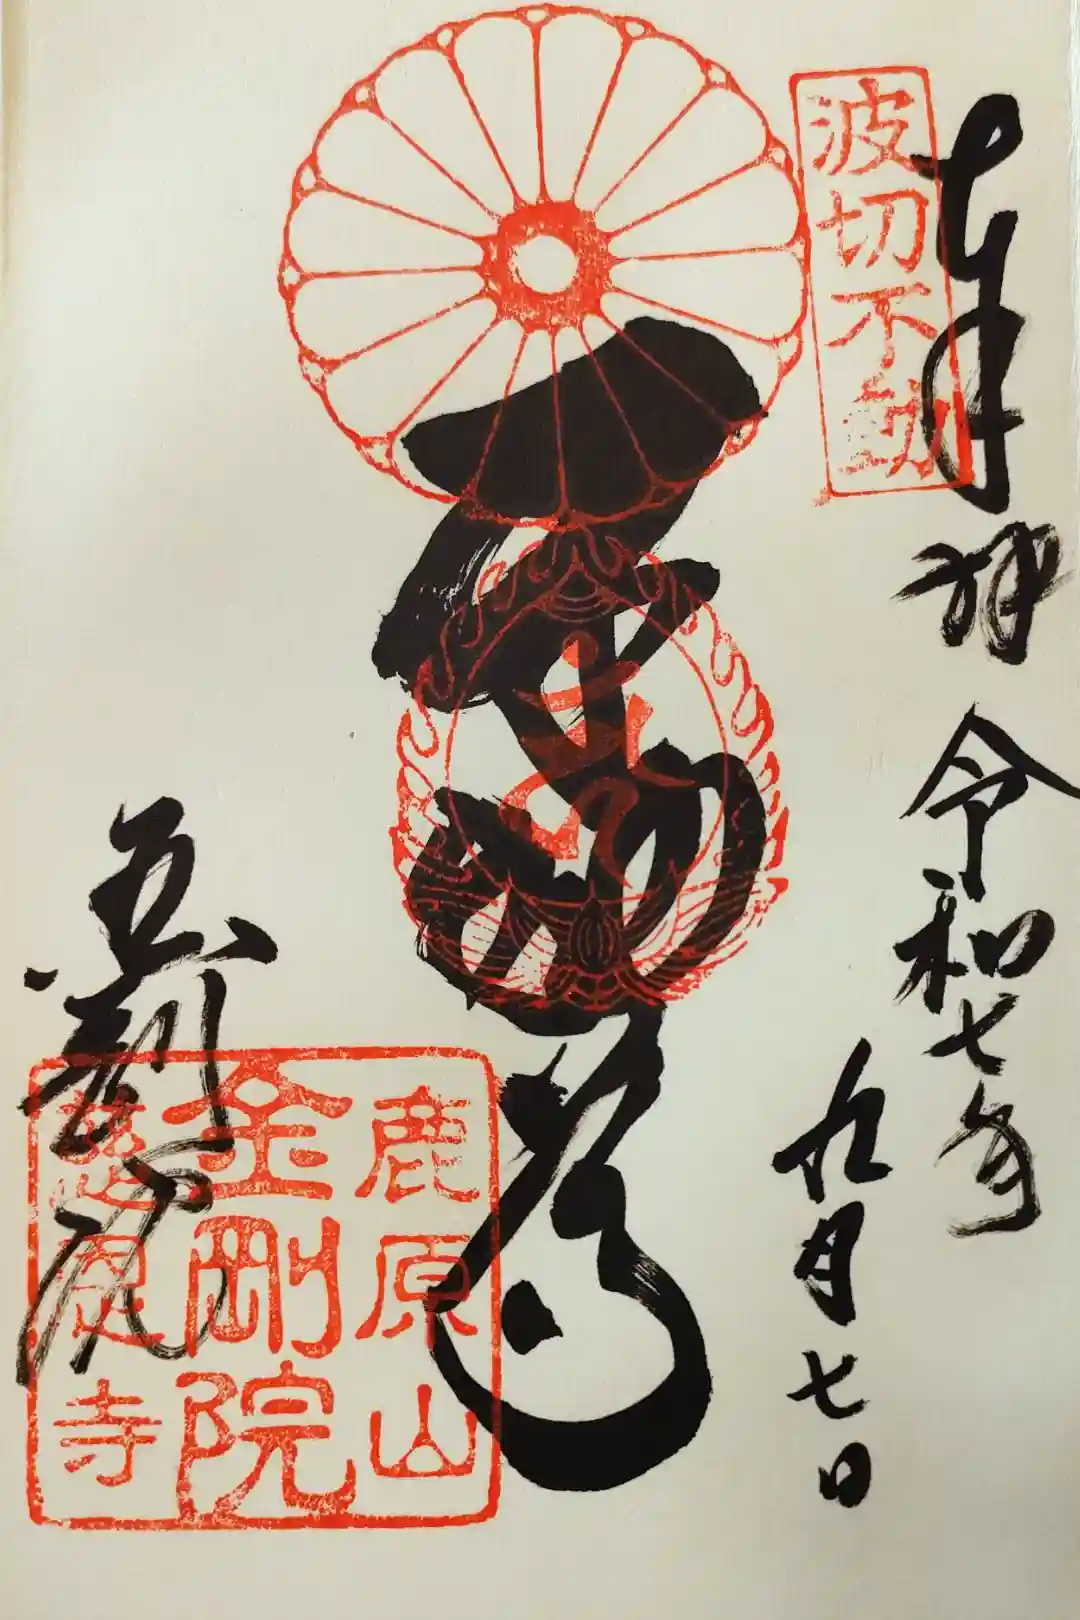 奉拝 令和七年
九月七日
波切不動
金剛院
鹿原山
金剛院
慈恩寺